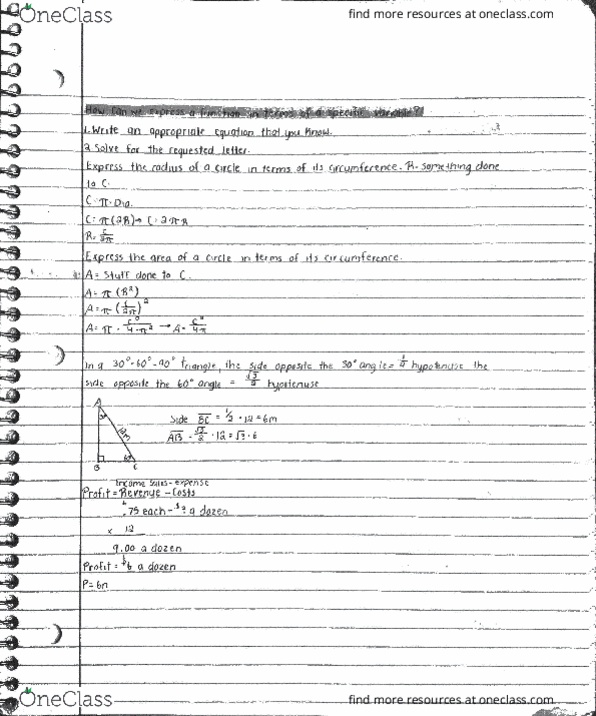 OneClass
find more resources at oneclass.com
How can we express a function in terms of a specific variable?
1. Write an appropriate equation that you know.
2. Solve for the requested letter.
Express the radius of a circle in terms of its circumference. R= something done
to C.
C= π · Dia.
C= π(2R) → C= 2πR
R= C/2π
Express the area of a circle in terms of its circumference.
A= Stuff done to C
A= π (R²)
A= π (C/2π)²
A= π · C²/4·π² → A= C²/4π
In a 30°-60°-90° triangle, the side opposite the 30° angle = 1/2 hypotenuse the
side opposite the 60° angle = √3/2 hypotenuse
A
30
12m
60
B C
Side BC = 1/2 · 12 = 6m
AB = √3/2 · 12 = √3 · 6
Income Sales - expense
Profit = Revenue - Costs
.75 each - $3 a dozen
x 12
9.00 a dozen
Profit = $6 a dozen
P= 6n
OneClass
find more resources at oneclass.com